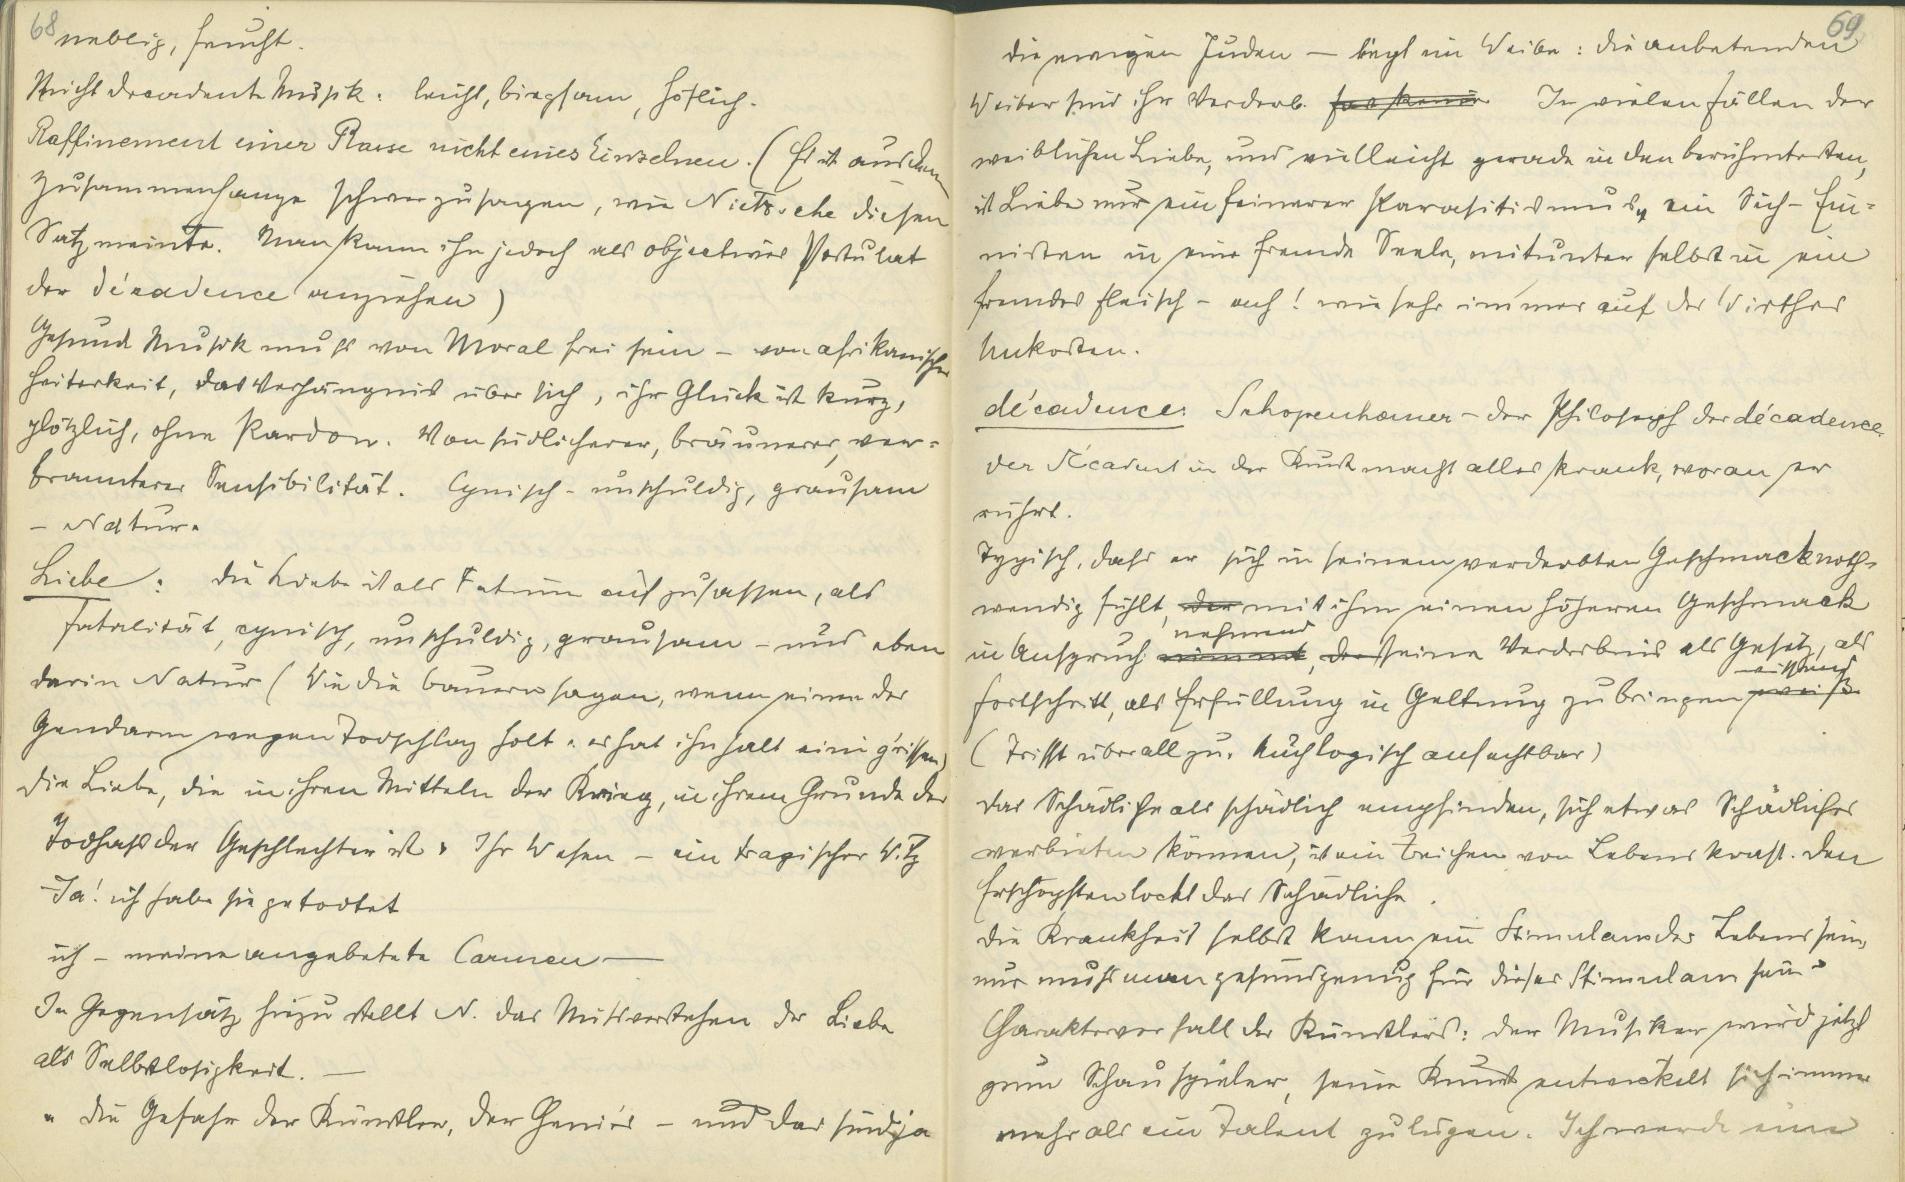 68
neblig, feucht.
Nicht decadente Musik: leicht, biegsam, höflich.
Raffinement einer Rasse nicht eines Einzelnen. (Es ist aus dem
Zusammenhange schwer zu sagen, wie Nietzsche diesen
Satz meinte. Man kann ihn jedoch als objectives Postulat
der décadence anziehen)
Gesund Musik muss von Moral frei sein – von afrikanischer
Heiterkeit, das Verhängnis über sich, ihr Glück ist kurz,
plötzlich, ohne Pardon. Von südlicherer, bräunerer, ver-
brannterer Sensibilität. Cynisch – unschuldig, grausam
– Natur.
Liebe: die Liebe ist als Fatum aufzufassen, als
Fatalität, cynisch, unschuldig, grausam – und eben
darin Natur (Wie die Bauern sagen, wenn einen der
Gendarm wegen Todschlag holt: er hat ihn halt eini g'rissen)
die Liebe, die in ihren Mitteln der Krieg, in ihrem Grunde der
Todhass der Geschlechter ist. Ihr Wesen – ein tragischer Witz
– Ja! ich habe sie getödtet
ich – meine angebetete Carmen –
Im Gegensatz hiezu stellt N. das Missverstehen der Liebe
als Selbstlosigkeit. –
" die Gefahr der Künstler, der Genies – und das sind ja
69
die ewigen Juden – liegt im Weibe: die anbetenden
Weiber sind ihr Verderb. In vielen Fällen der
weiblichen Liebe, und vielleicht gerade in den berühmtesten,
ist Liebe nur ein feinerer Parasitismus, ein Sich-Ein-
nisten in eine fremde Seele, mitunter selbst in ein
fremdes Fleisch – ach! wie sehr immer auf des Wirthes
Unkosten.
décadence: Schopenhauer – der Philosoph der décadence.
der décadent in der Kunst macht alles krank, woran er
rührt.
Typisch, dass er sich in seinem verderbten Geschmack noth-
wendig fühlt, der mit ihm einen höheren Geschmack
in Anspruch nimmt nehmend, der seine Verderbnis als Gesetz, als
Fortschritt, als Erfüllung in Geltung zu bringen weiß wissend
(Trifft überall zu. Auch logisch anfechtbar)
Das Schädliche als schädlich empfinden, sich etwas Schädliches
verbieten können, ist ein Zeichen von Lebenskraft. Den
Erschöpften lockt das Schädliche.
Die Krankheit selbst kann ein Stimulans des Lebens sein,
nur muss man gesund genug für dieses Stimulans sein.
Charakterverfall des Künstlers: der Musiker wird jetzt
zum Schauspieler, seine Kunst entwickelt sich immer
mehr als ein Talent zu lügen. Ich werde eine